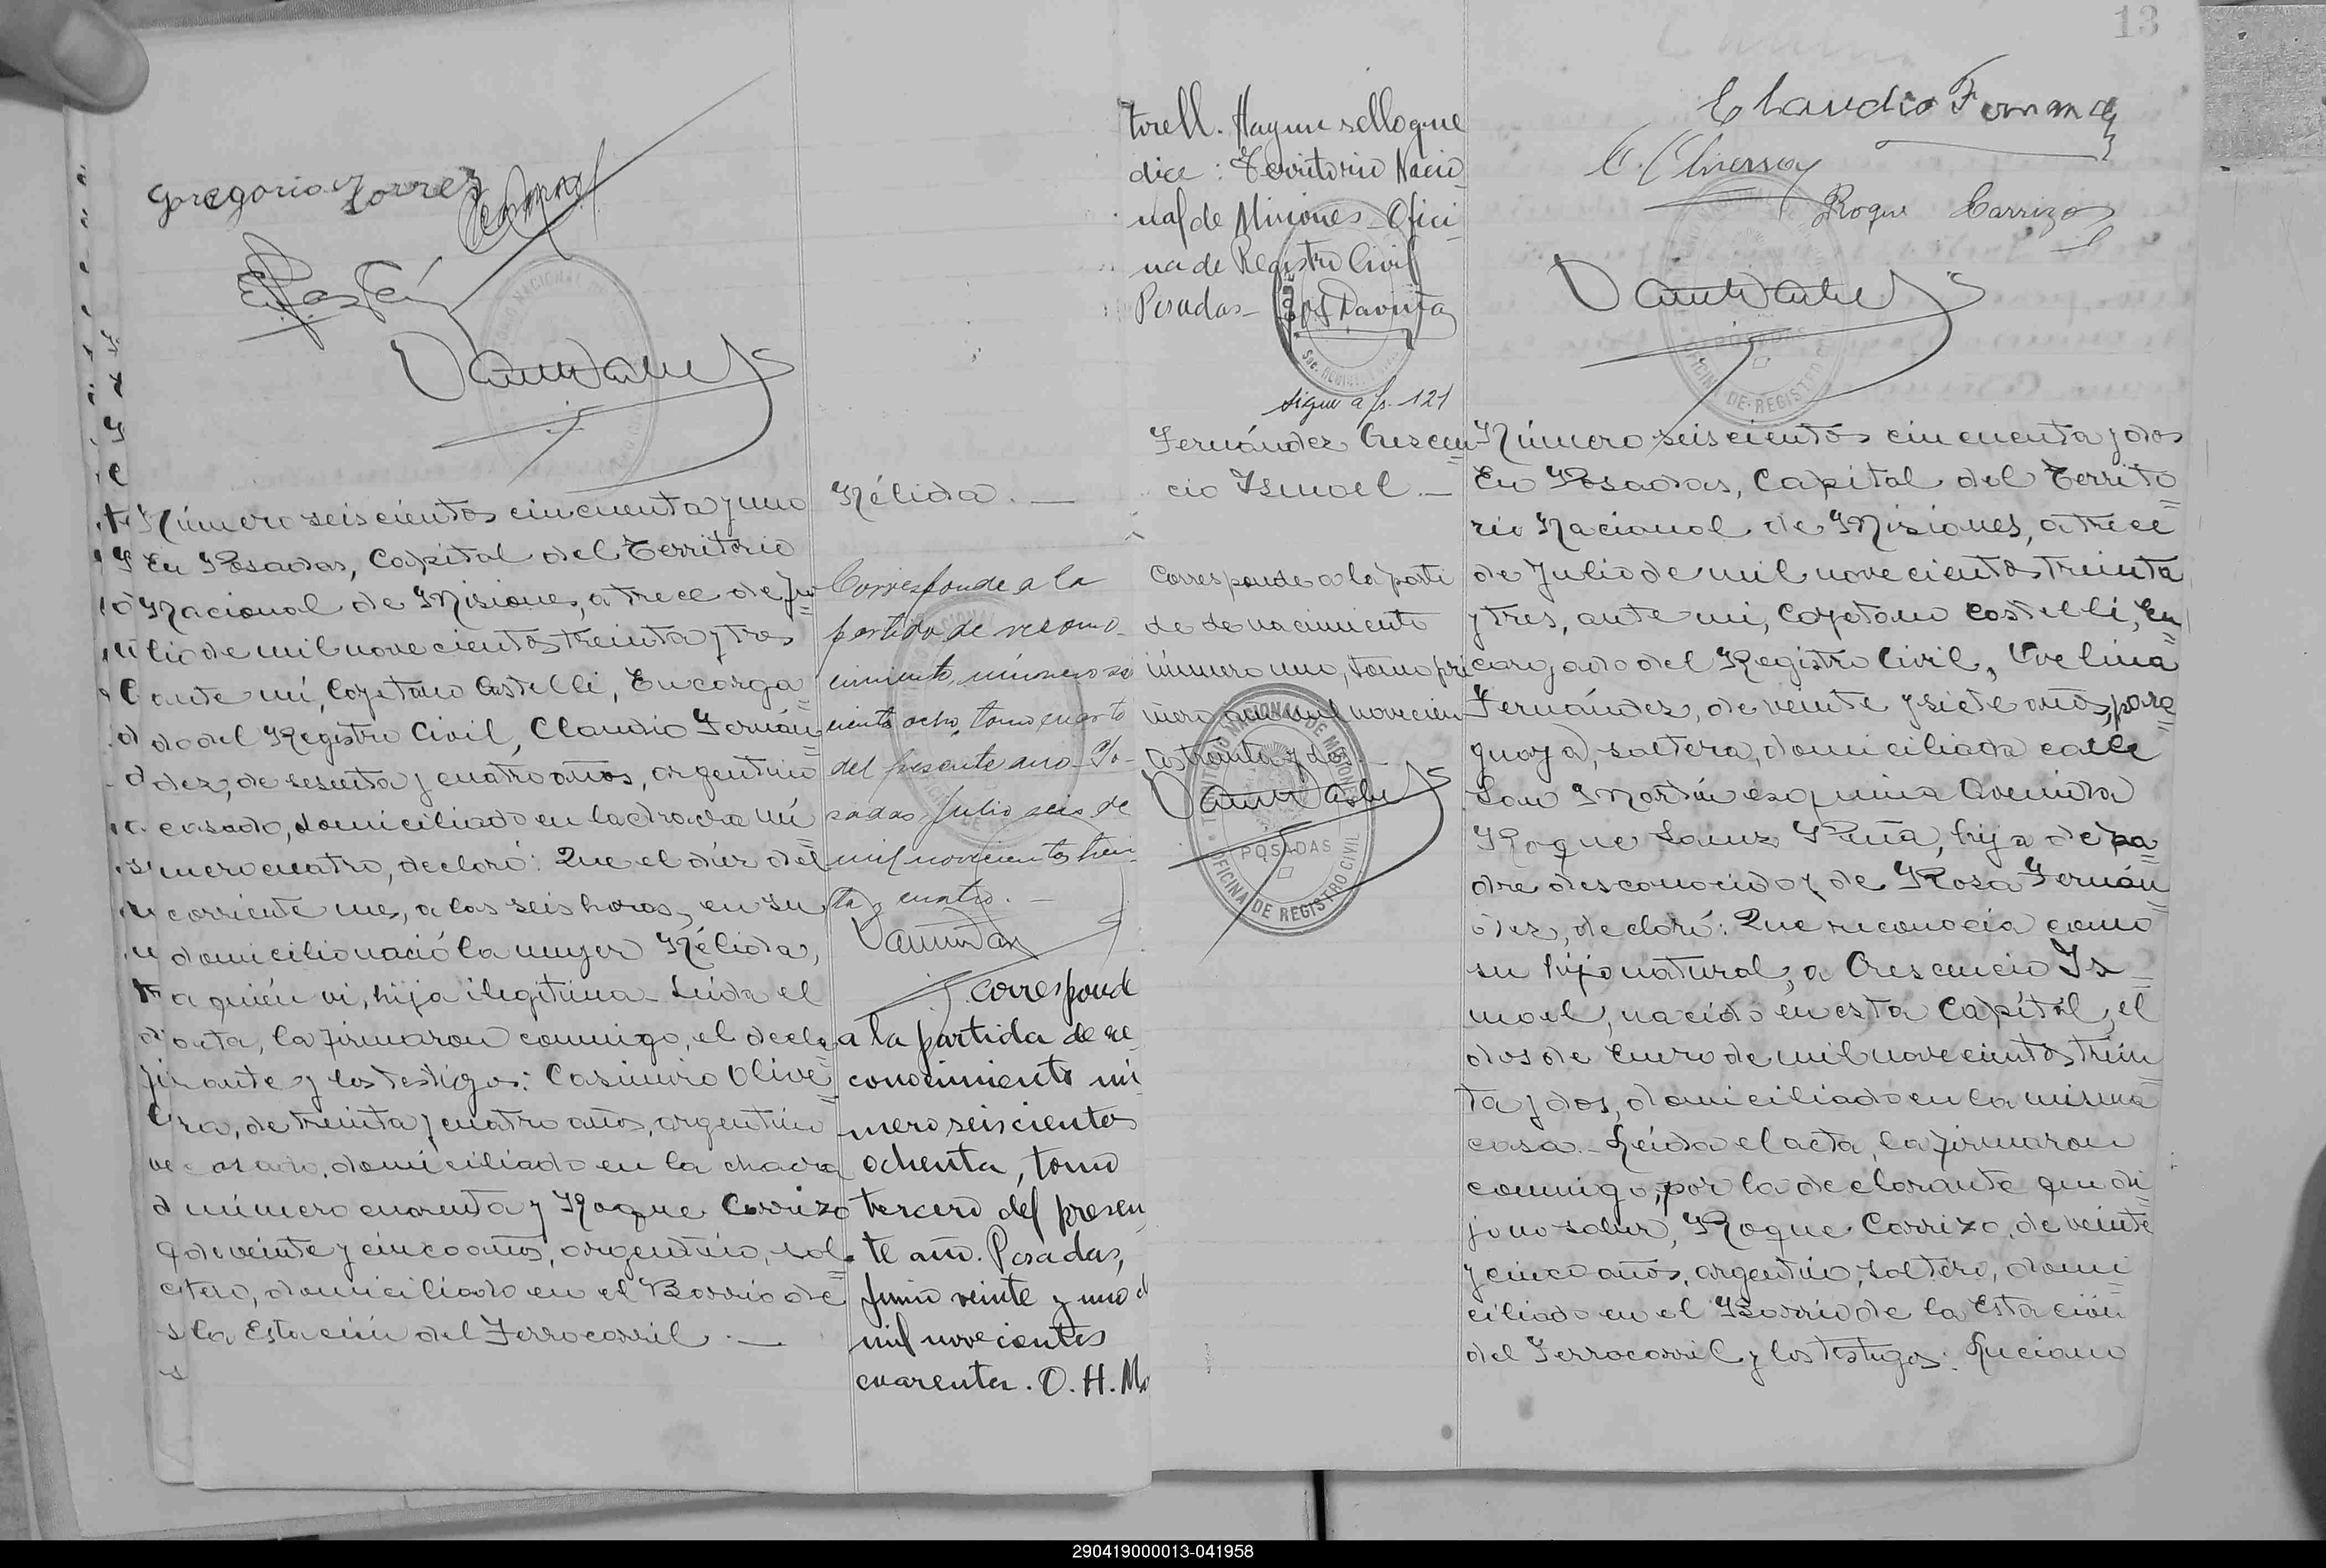 Gregorio Torres
Número seiscientos cincuenta y uno
En Posadas, Capital del Territorio
Nacional de Misiones, a trece de Ju
lio de mil novecientos treinta y tres
ante mí, Cayetano Castelli, Encarga
do del Registro Civil, Claudio Fernán
dez, de sesenta y cuatro años, argentino
casado, domiciliado en la chacra nú
mero cuatro, declaró: Que el diez del
corriente mes, a las seis horas, en su
domicilio nació la mujer Nélida,
a quién vi, hija ilegítima. Leída el
acta, la firmaron conmigo, el decla
rante y los testigos: Casimiro Olive
ra, de treinta y cuatro años, argentino
casado, domiciliado en la chacra
número cuarenta y Roque Carrizo
de veinte y cinco años, argentino, sol
tero, domiciliado en el Barrio de
la Estación del Ferrocarril. —
Nélida. —
Corresponde a la
partida de recono-
cimiento, número se
ciento ocho, tomo cuarto
del presente año. Po-
sadas, Julio seis de
mil novecientos trein-
ta y cuatro. —
Corresponde
a la partida de re
conocimiento nú
mero seiscientos
ochenta, tomo
tercero del presen
te año. Posadas,
Junio veinte y uno d
mil novecientos
cuarenta. O. H. Ma
torell. Hay un sello que
dice: Territorio Nacio
nal de Misiones - Ofici
na de Registro Civil
Posadas -
sigue a fs. 121
Fernández Crescen
cio Ismael. —
Corresponde a la parti
da de nacimiento
número uno, tomo pri
mero año mil novecien
tos treinta y dos. —
TERRITORIO NACIONAL DE MISIONES
POSADAS
OFICINA DE REGISTRO CIVIL
13
Claudio Fernandez
Roque Carrizo
Número seiscientos cincuenta y dos
En Posadas, Capital del Territo
rio Nacional de Misiones, a trece
de Julio de mil novecientos treinta
y tres, ante mi, Cayetano Castelli, En
cargado del Registro Civil, Evelina
Fernández, de veinte y siete años, para
guaya, soltera, domiciliada calle
San Martín esquina Avenida
Roque Saenz Peña, hija de pa
dre desconocido y de Rosa Fernán
dez, declaró: Que reconocía como
su hijo natural, a Crescencio Is
mael, nacido en esta Capital, el
dos de Enero de mil novecientos trein
ta y dos, domiciliado en la misma
casa. Leída el acta, la firmaron
conmigo, por la declarante que di
jo no saber, Roque Carrizo, de veinte
y cinco años, argentino, soltero, domi
ciliado en el Barrio de la Estación
del Ferrocarril y los testigos: Luciano